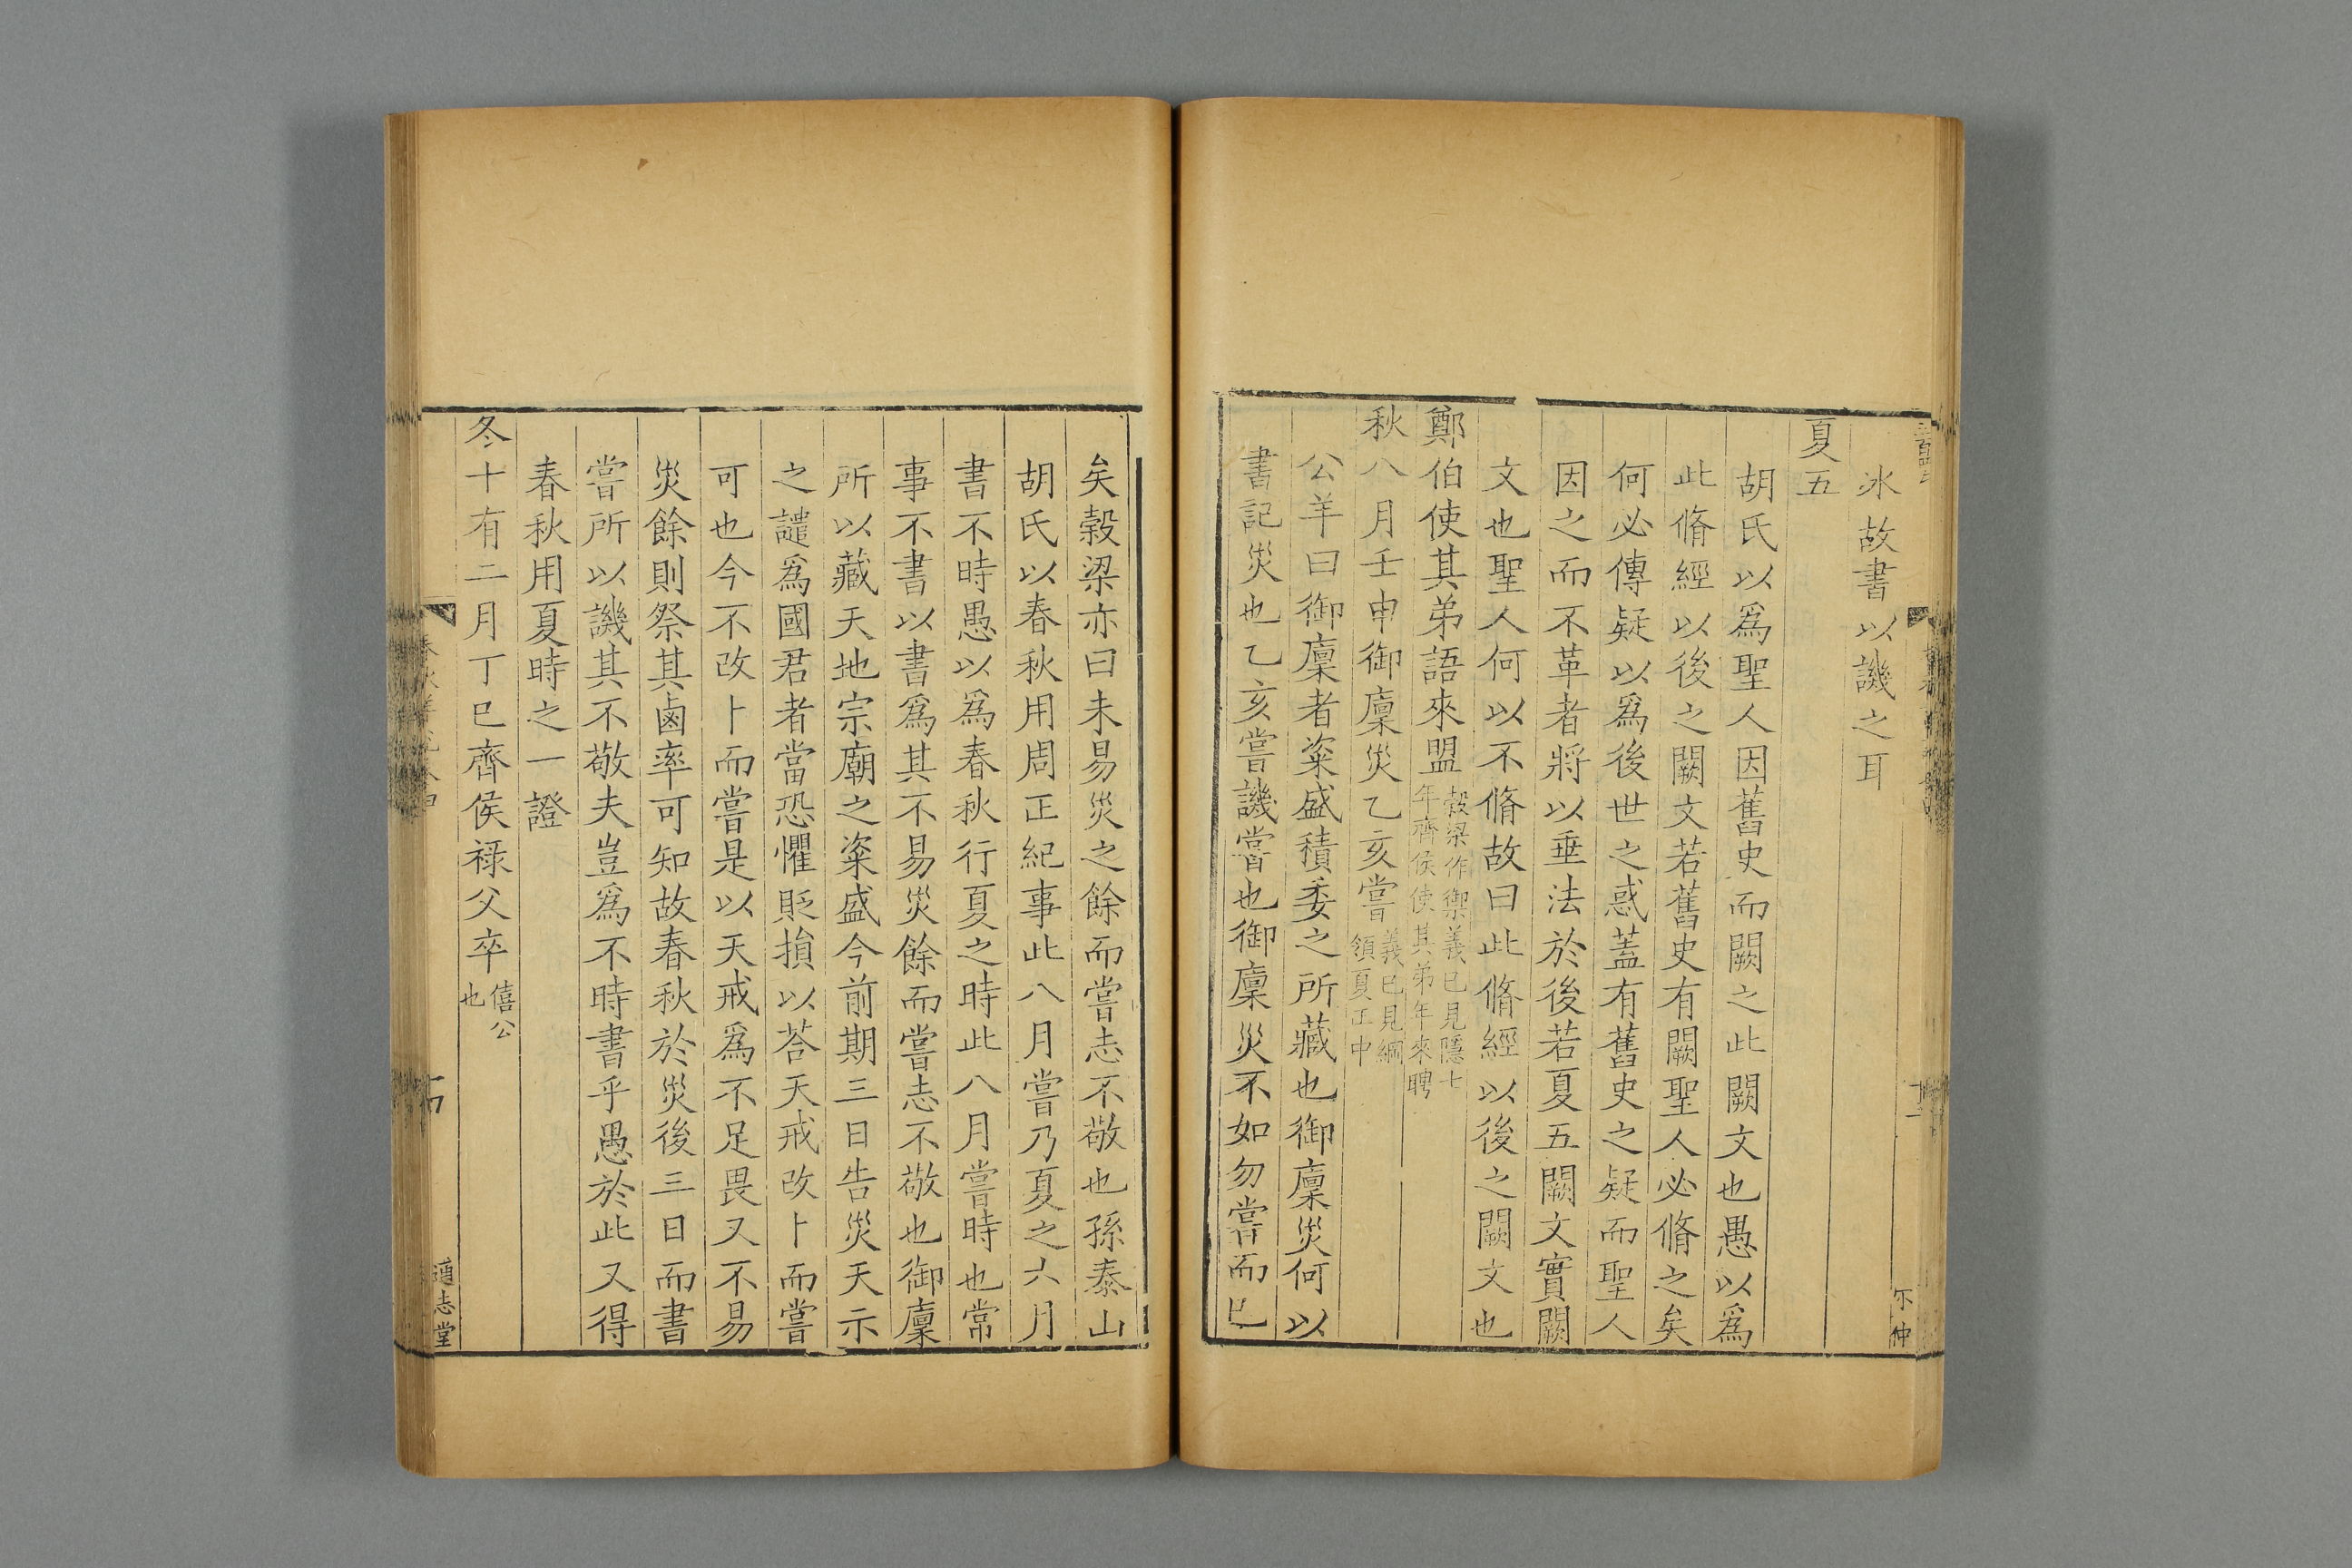 冰故書以譏之耳
夏五
胡氏以爲聖人因舊史而闕之此闕文也愚以爲
此脩經以後之闕文若舊史有闕聖人必脩之矣
何必傳疑以爲後世之惑蓋有舊史之疑而聖人
因之而不革者將以垂法於後若夏五闕文實闕
文也聖人何以不脩故曰此脩經以後之闕文也
鄭伯使其弟語來盟穀梁作禦義已見隱七
年齊侯使其弟年來聘
秋八月壬申御廩災乙亥嘗義已見綱
領夏正中
公羊曰御廩者粢盛積委之所藏也御廩災何以
書記災也乙亥嘗譏嘗也御廩災不如勿嘗而已
矣穀梁亦曰未易災之餘而嘗志不敬也孫泰山
胡氏以春秋用周正紀事此八月嘗乃夏之六月
書不時愚以爲春秋行夏之時此八月嘗時也常
事不書以書爲其不易災餘而嘗志不敬也御廩
所以藏天地宗廟之粢盛今前期三日告災天示
之譴爲國君者當恐懼貶損以荅天戒改卜而嘗
可也今不改卜而嘗是以天戒爲不足畏又不易
災餘則祭其鹵率可知故春秋於災後三日而書
嘗所以譏其不敬夫豈爲不時書乎愚於此又得
春秋用夏時之一證
冬十有二月丁巳齊侯禄父卒僖公
也
通志堂